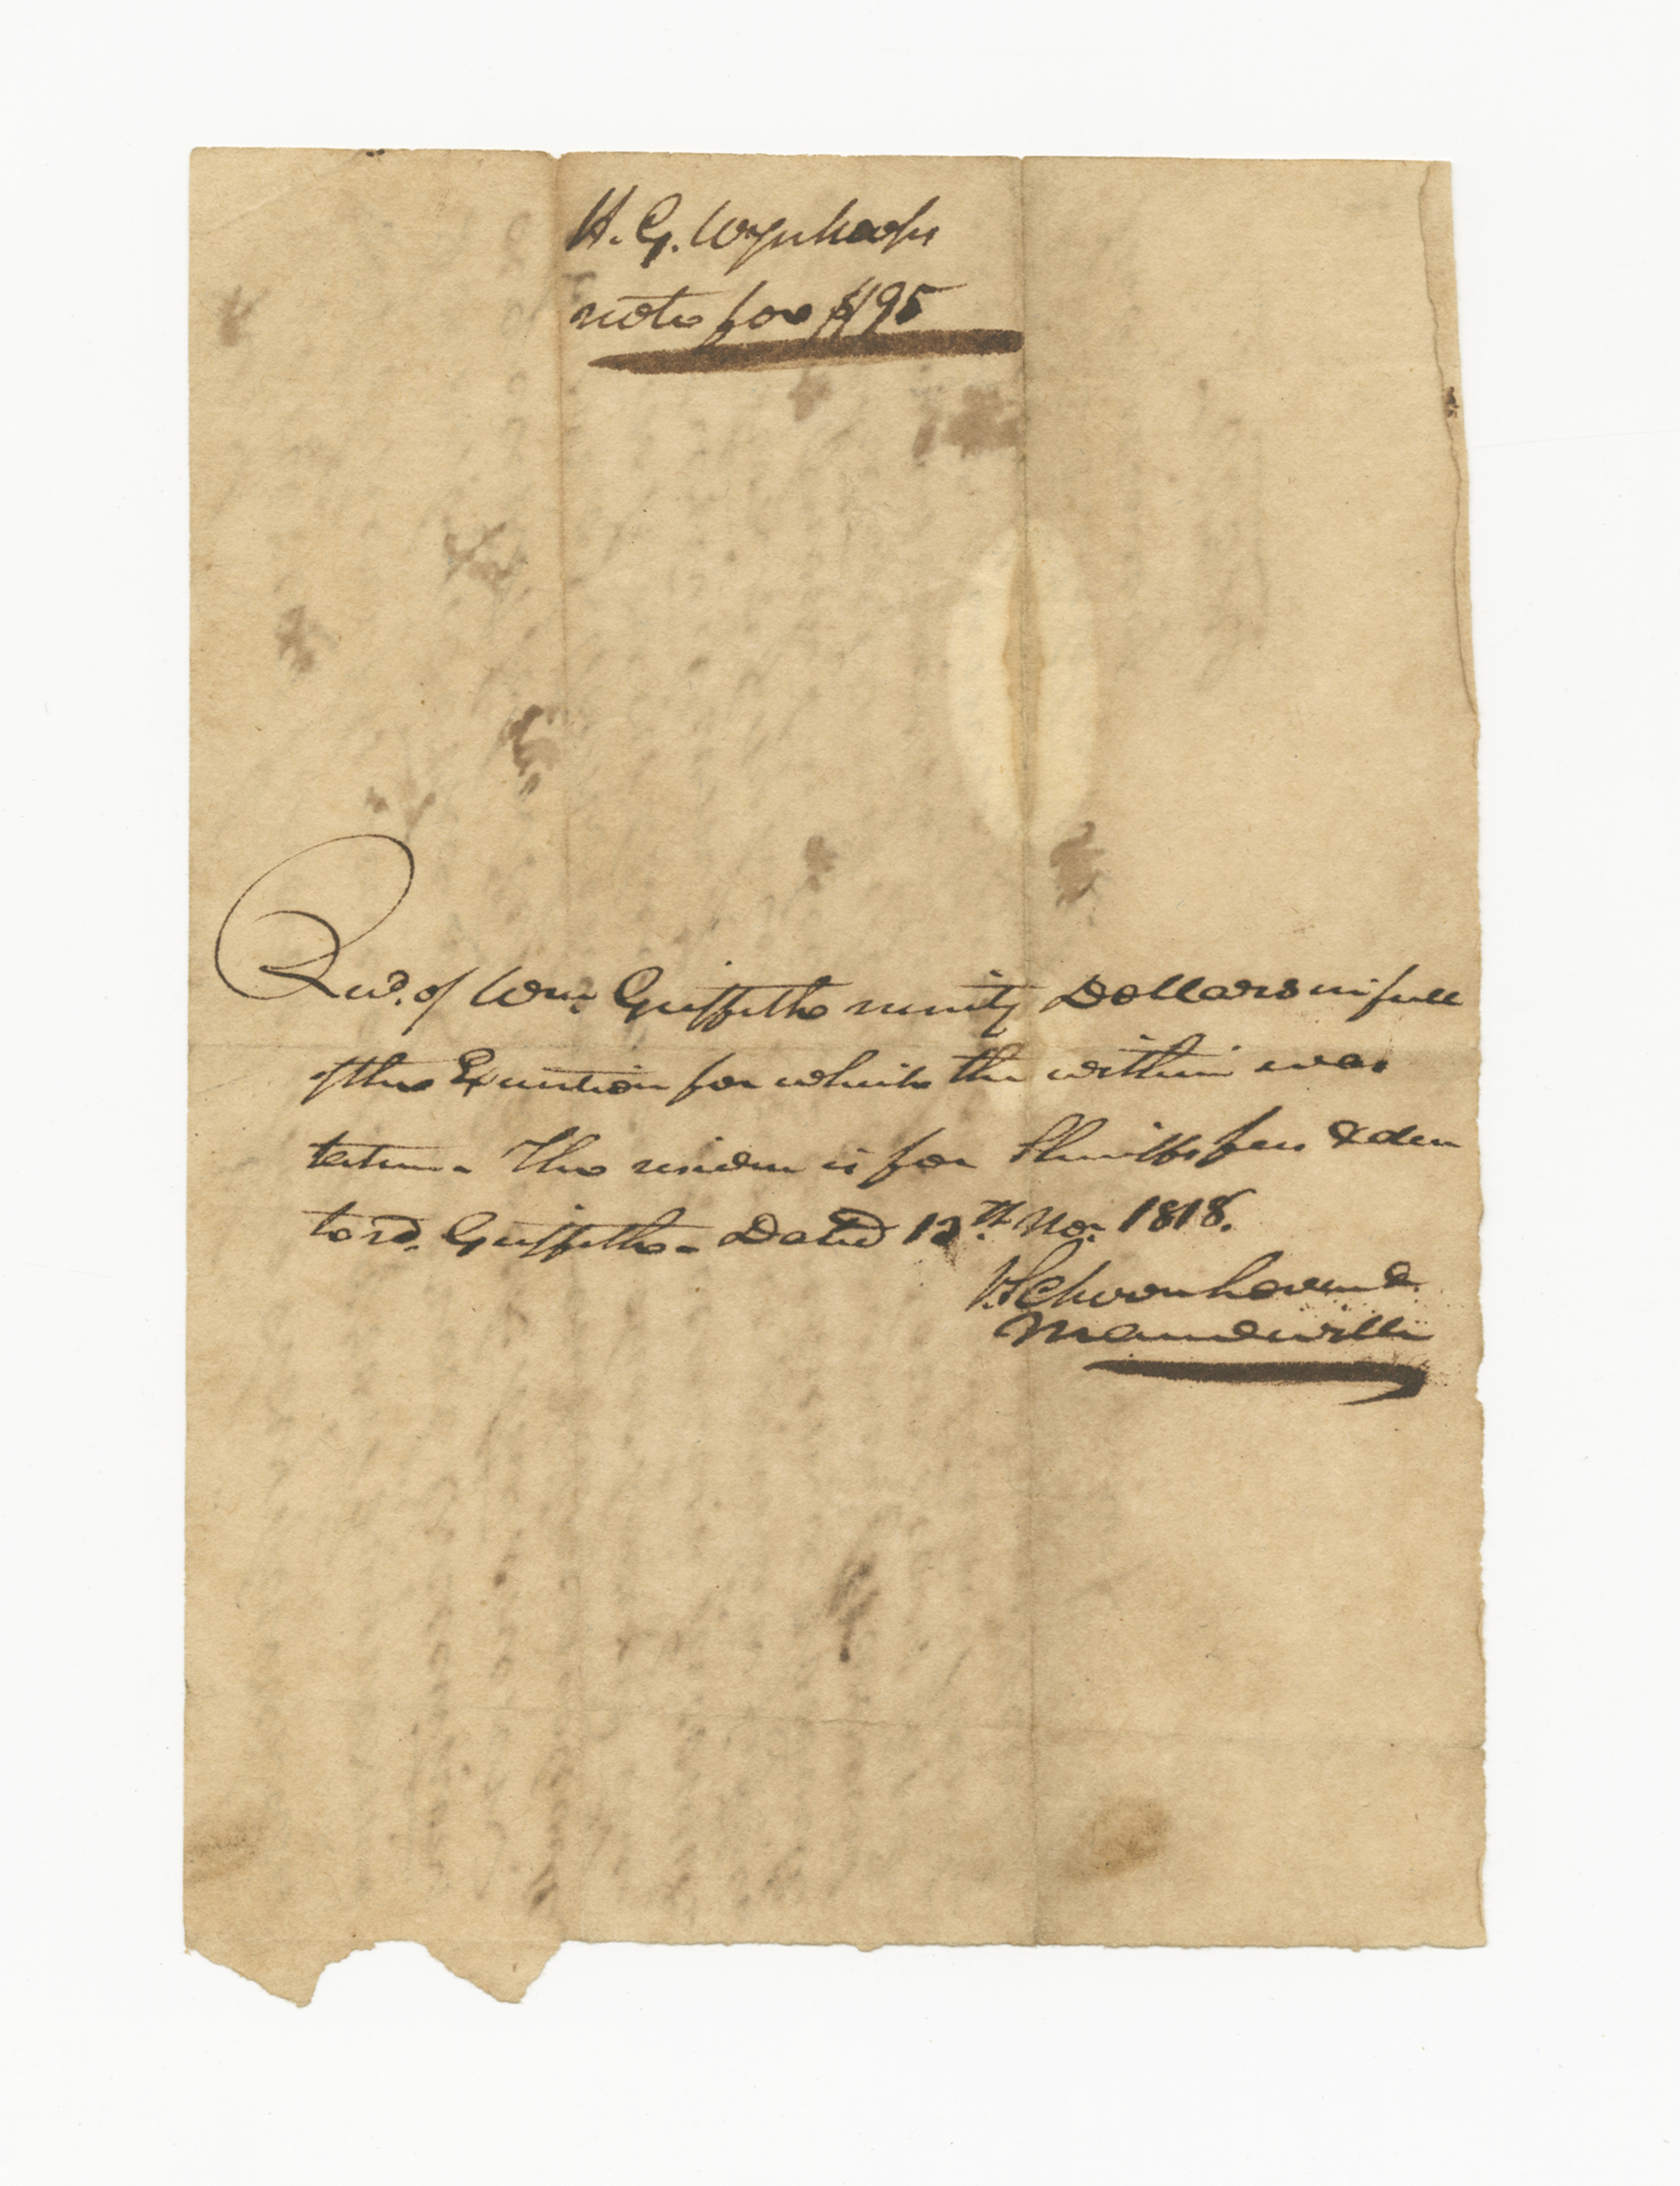 H. G. Wynkoops
note for $195
Recd. of Wm. Griffiths ninety Dollars in full
of the Execution for which the within was
taken. The residue is for Sheriffs fees & due
to sd. Griffiths. Dated 12th. Nov. 1818.
V. Schoonhoven &
Mandeville